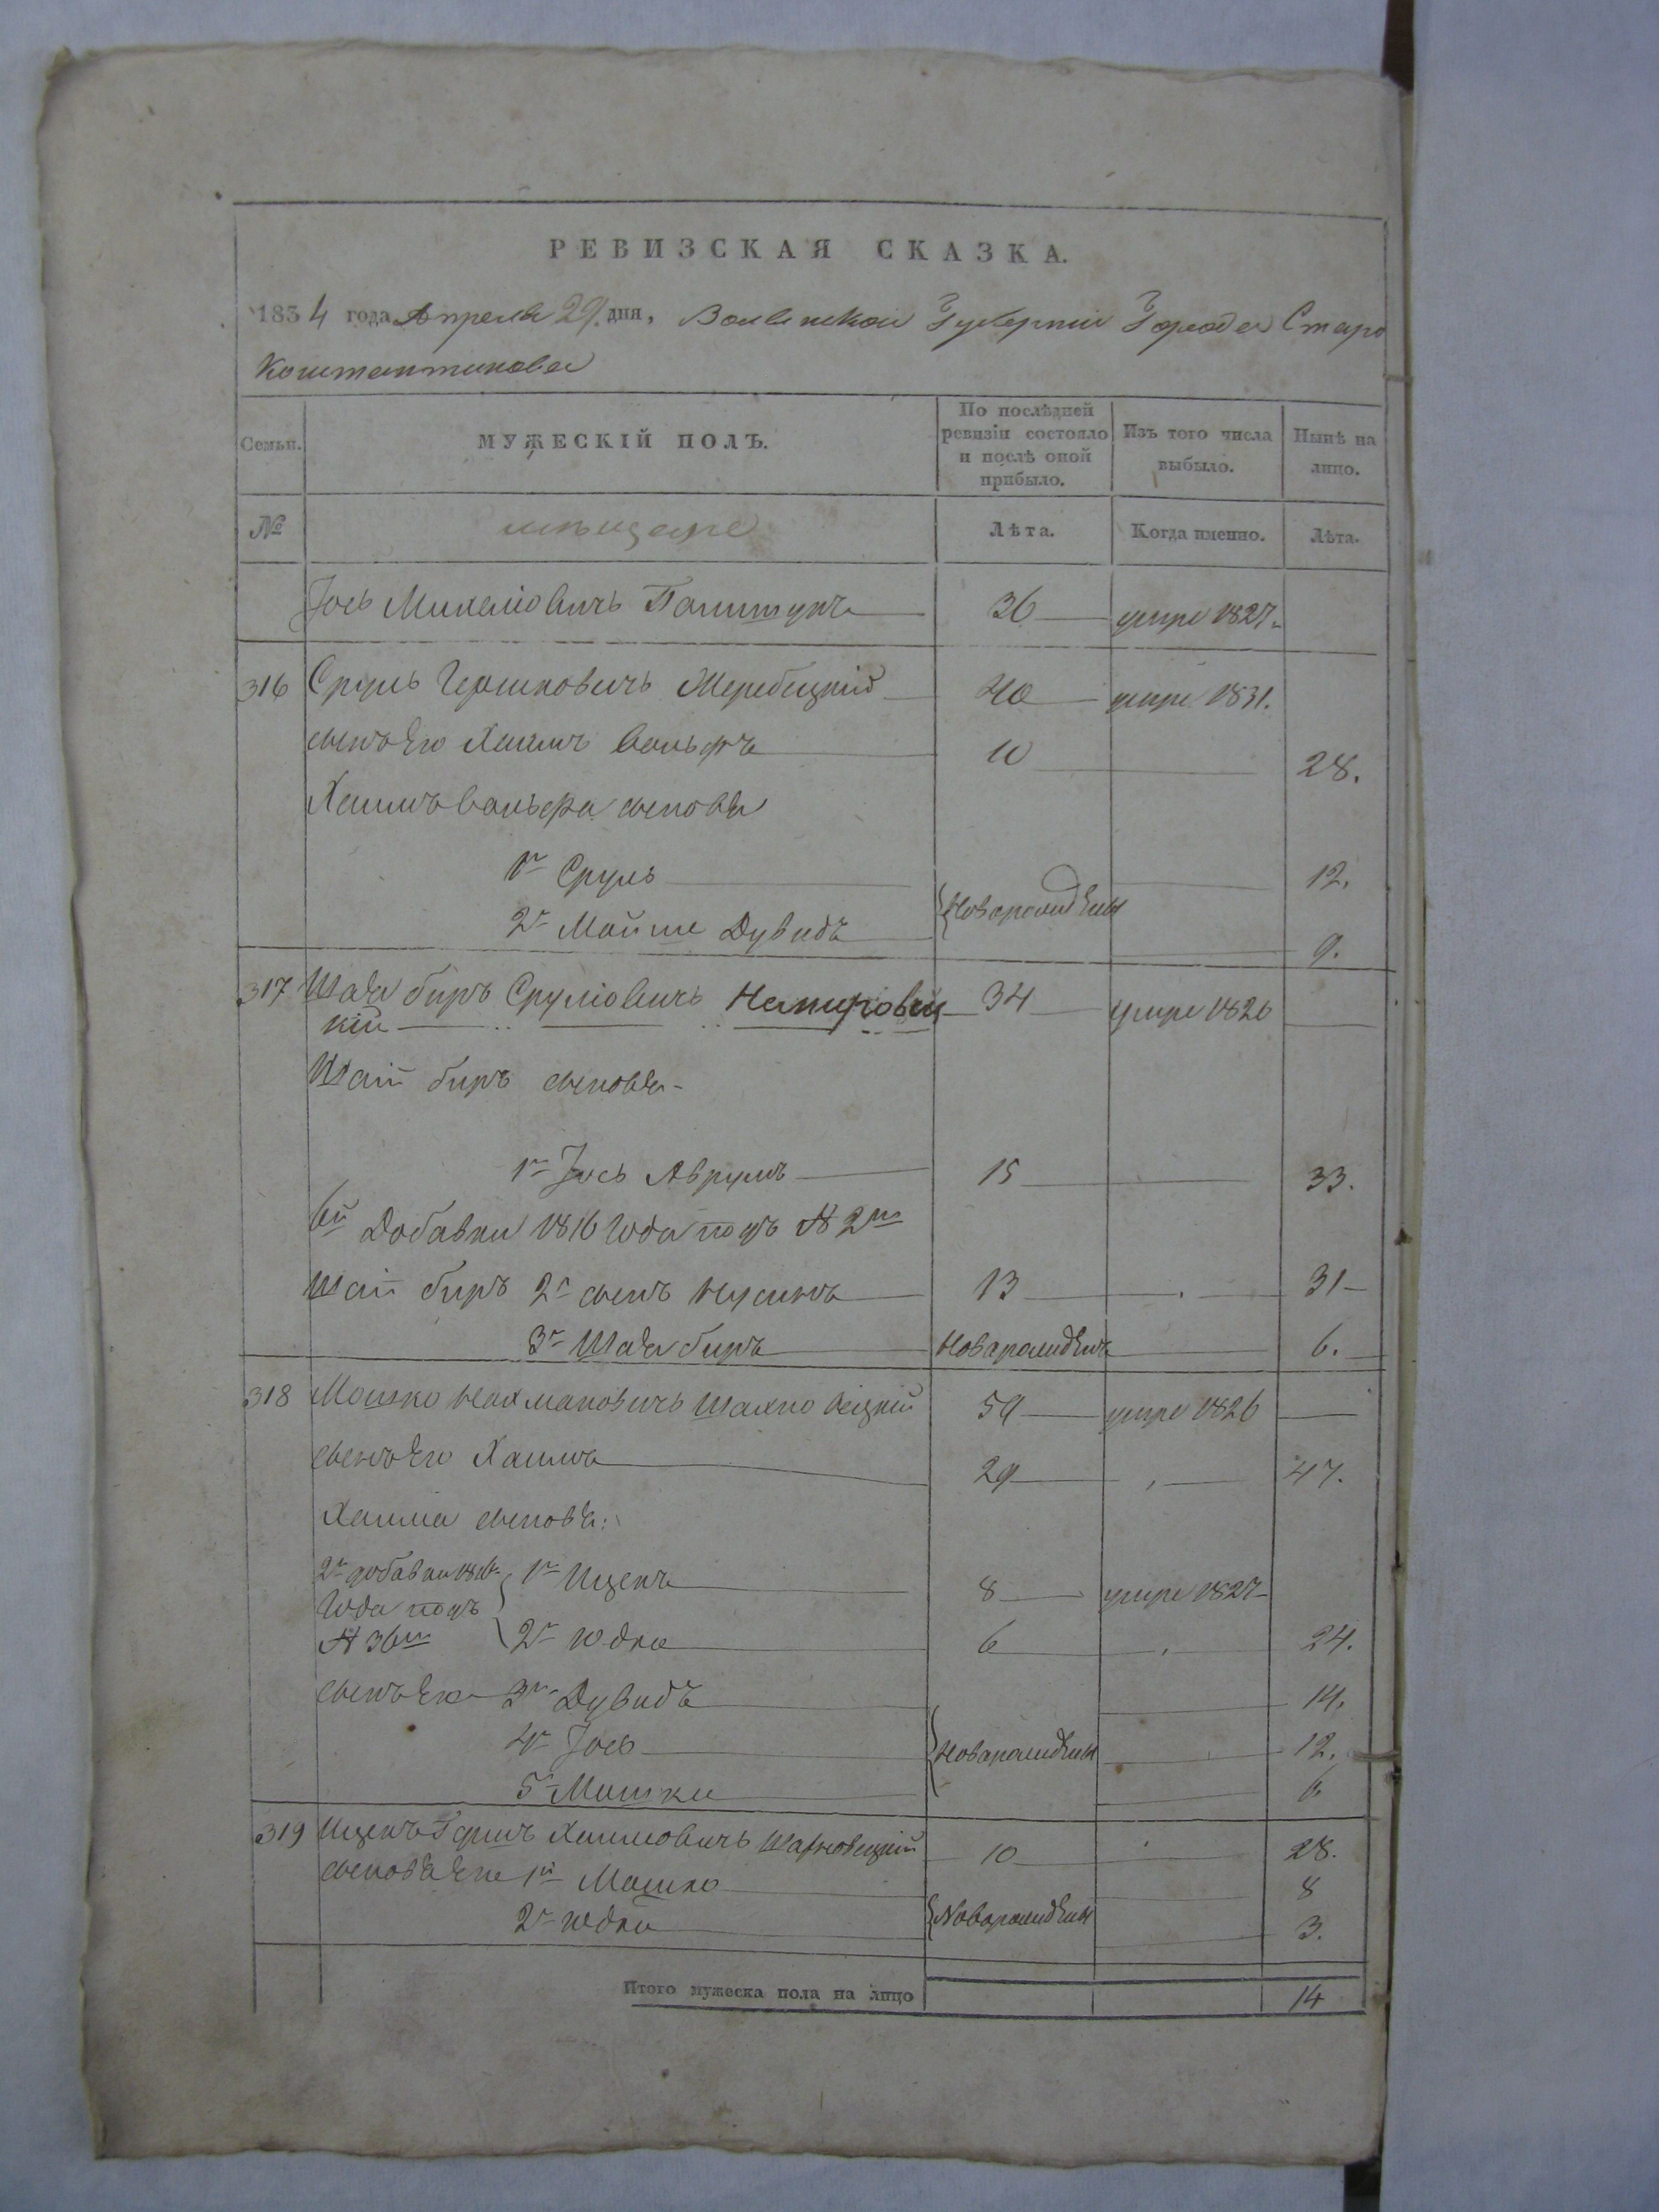 РЕВИЗСКАЯ СКАЗКА.
1834 года Апреля 29 дня, Волынской Губернии Города Старо
Константинова
Семьи. МУЖЕСКІЙ ПОЛЪ. По послѣдней ревизіи состояло и послѣ оной прибыло. Изъ того числа выбыло. Нынѣ на лицо.
№ мещане Лѣта. Когда именно. Лѣта.
Іось 36 умре 1827
316 Сруль Гершковичъ Жеребецкій 40 умре 1831.
сынъ Его Хаимъ Вольфъ 10 28.
Хаимъ Вольфа сыновья
1й Сруль 12.
2й Мойше Дувидъ Новорожденны 9.
317 Шая Биръ Сруліовичъ Немировец 34 умре 1826
кій
Шаи Биръ сыновья
1й Іось Аврумъ 15 33.
6й Добавки 1816 года подъ № 2м
Шаи Биръ 2й сынъ Нусинъ 13 31
3й Шая Биръ Новорожденъ 6.
318 Мошко Нахмановичъ 59 умре 1826
сынъ Его Хаимъ 29 47.
Хаима сыновья:
2й добавки 1816 1й Ицекъ 8 умре 1827
года подъ
№ 36м 2й Юдка 6 24.
сынъ Его 3й Дувидъ 14.
4й Іось Новорожденны 12.
5й Мошко 6
319 Ицекъ Гершъ Хаимовичъ 10 28.
сыновья Его 1й Мошко 8
2й Юдка Новорожденны 3.
Итого мужеска пола на лицо 14